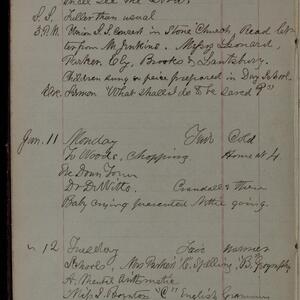 S. S. Fuller than usual
3 P.M. Union S. S. Concert in Stone Church, Read let-
ter from Mr. Jenkins. Messrs Leonard,
Parker, Ely, Brooks & Santsbury.
Children sung a piece prepared in Day School.
Eve. Sermon "What shall I do to be saved?"
Jan. 11 Monday Fair Cold
To Woods, Chopping. Home at 4.
Down Town
Dr. DeWitts. Crandall & there
Baby crying prevented going.
" 12 Tuesday Fair warmer
Schools, Mrs Parker's "C" Spelling, "B" Geography
A. Mental Arithmetic
Miss J. "C" English Grammar